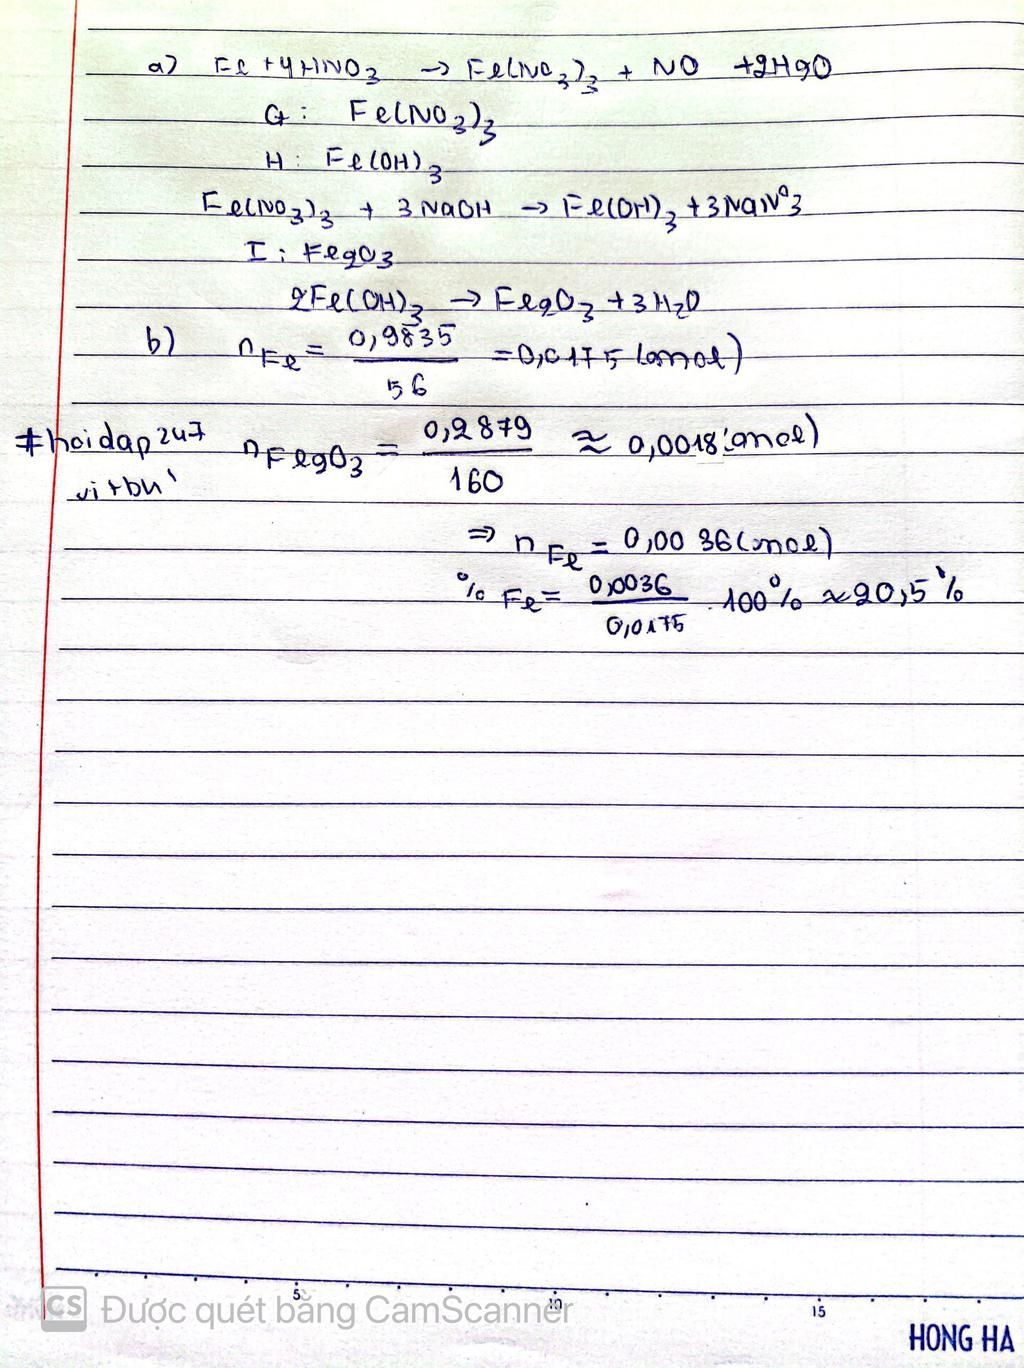 a) Fe + 4HNO3 → Fe(NO3)3 + NO + 2H2O
G: Fe(NO3)3
H: Fe(OH)3
Fe(NO3)3 + 3NaOH → Fe(OH)3 + 3NaNO3
I: Fe2O3
2Fe(OH)3 → Fe2O3 + 3H2O
b) nFe = 0,9835/56 = 0,0175 (mol)
#hoidap247 nFe2O3 = 0,2879/160 ≈ 0,0018 (mol)
⇒ nFe = 0,0036 (mol)
%Fe = 0,0036/0,0175 . 100% ≈ 20,5%
5 10 15
CS Được quét bằng CamScanner
HONG HA